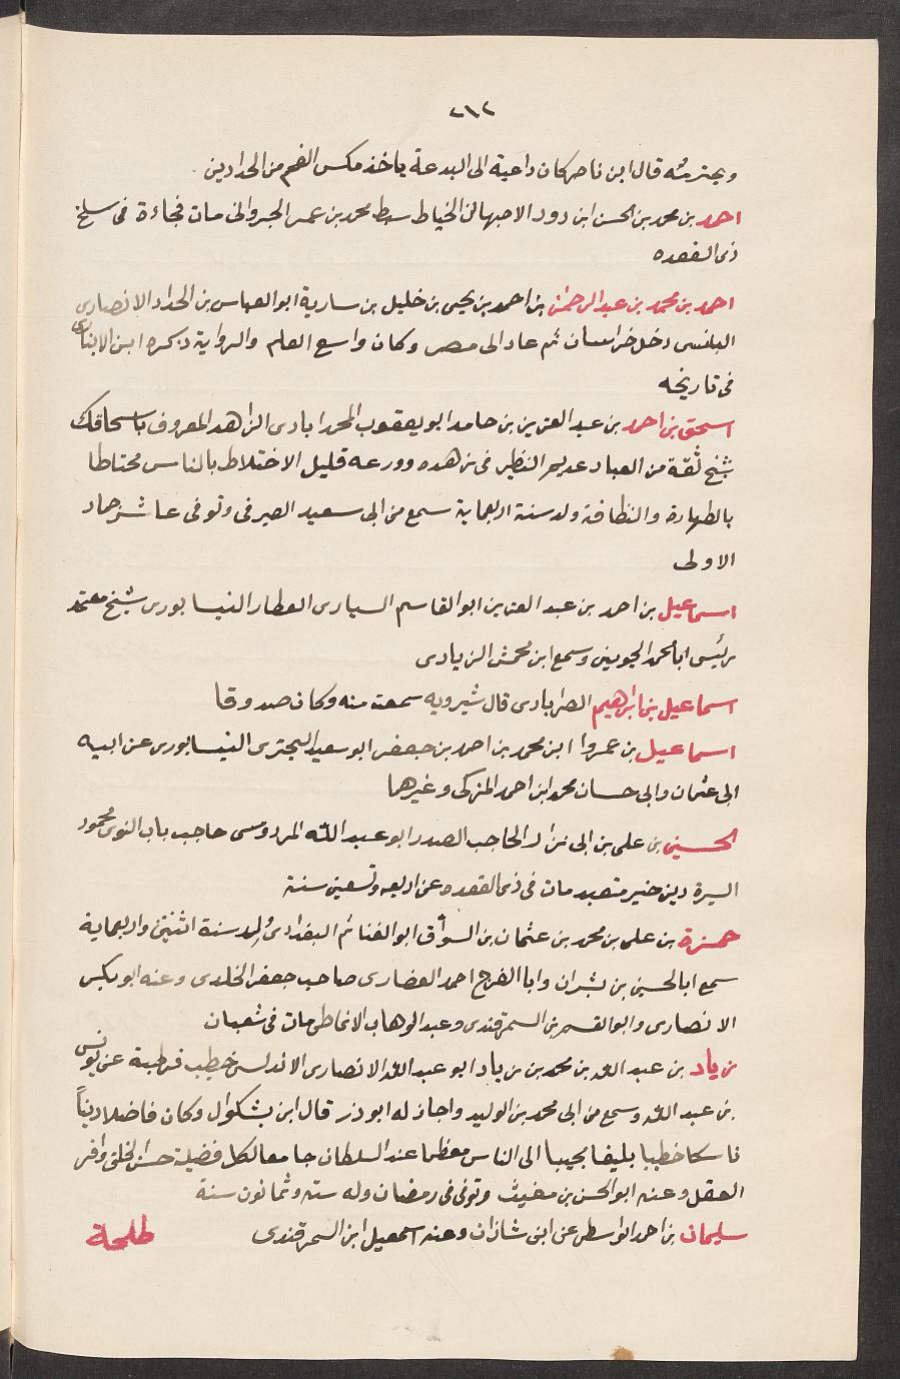 ٢١٢
ويحترمه قال ابن ناصر كان داعية الى البدعة ياخذ مكس الفحم من الحدادين
احمد بن محمد بن الحسن ابن دود الاصبهانى الخياط سبط محمد بن عمر الجروانى مات فجاءة فى سلخ
ذى القعده
احمد بن محمد بن عبد الرحمن بن احمد بن يحيى بن خليل بن سارية ابو العباس بن الحداد الانصارى
البلنسى دخل خراسان ثم عاد الى مصر وكان واسع العلم والرواية ذكره ابن الابار
فى تاريخه
اسحق بن احمد بن عبد العزيز بن حامد ابو يعقوب المحمدابادى الزاهد المعروف باسحاقك
شيخ ثقة من العباد عديم النظير فى زهده وورعه قليل الاختلاط بالناس محتاطا
بالطهارة والنظافة ولد سنة اربعماية سمع من ابى سعيد الصيرفى وتوفى عاشر جماد
الاولى
اسماعيل بن احمد بن عبد العزيز ابو القاسم السيارى العطار النيسابورى شيخ معتمد
رئيس ابا محمد الجوينى وسمع ابن محمش الزيادى
اسماعيل بن ابراهيم الصرابادى قال شيرويه سمعت منه وكان صدوقا
اسماعيل بن عمروا ابن محمد بن احمد بن جعفر ابو سعيد البحترى النيسابورى عن ابيه
ابى عثمان وابى حسان محمد ابن احمد المزكى وغيرهما
الحسين بن على بن ابى نزار الحاجب الصدر ابو عبد الله المردوسى حاجب باب النوبى محمود
السيرة دين خير متعبد مات فى ذى القعده عن اربعه وتسعين سنة
حمزة بن على بن محمد بن عثمان بن السواق ابو الغنائم البغدادى ولد سنة اثنتين واربعماية
سمع ابا الحسين بن بشران وابا الفرج احمد الغضارى صاحب جعفر الخلدى وعنه ابو بكر
الانصارى وابو القسم بن السمرقندى وعبد الوهاب الانماطى مات فى شعبان
زياد بن عبد الله بن محمد بن زياد ابو عبد الله الانصارى الاندلسى خطيب قرطبة عن يونس
بن عبد الله وسمع من ابى محمد بن الوليد واجاز له ابو ذر قال ابن بشكوال وكان فاضلا ديناً
ناسكا خطيبا بليغا محببا الى الناس معظما عند السلطان جامعا لكل فضيلة حسن الخلق وافر
العقل وعنه ابو الحسن بن مغيث وتوفى فى رمضان وله ستة وثمانون سنة
سليمان بن احمد الواسطى عن ابى شاذان وعنه اسمعيل ابن السمرقندى طلحة